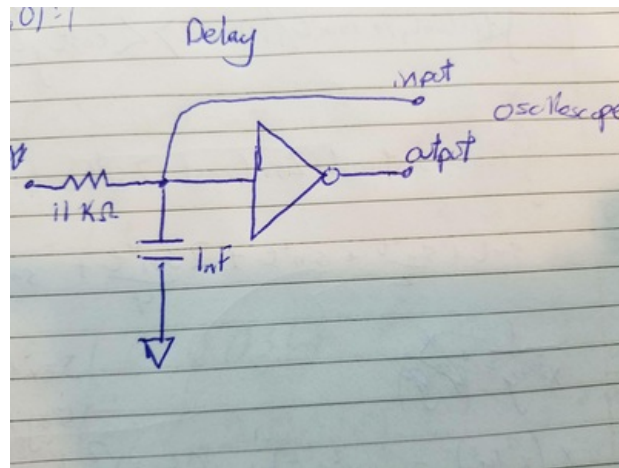 Delay
input
oscilloscope
output
11 KΩ
1nF